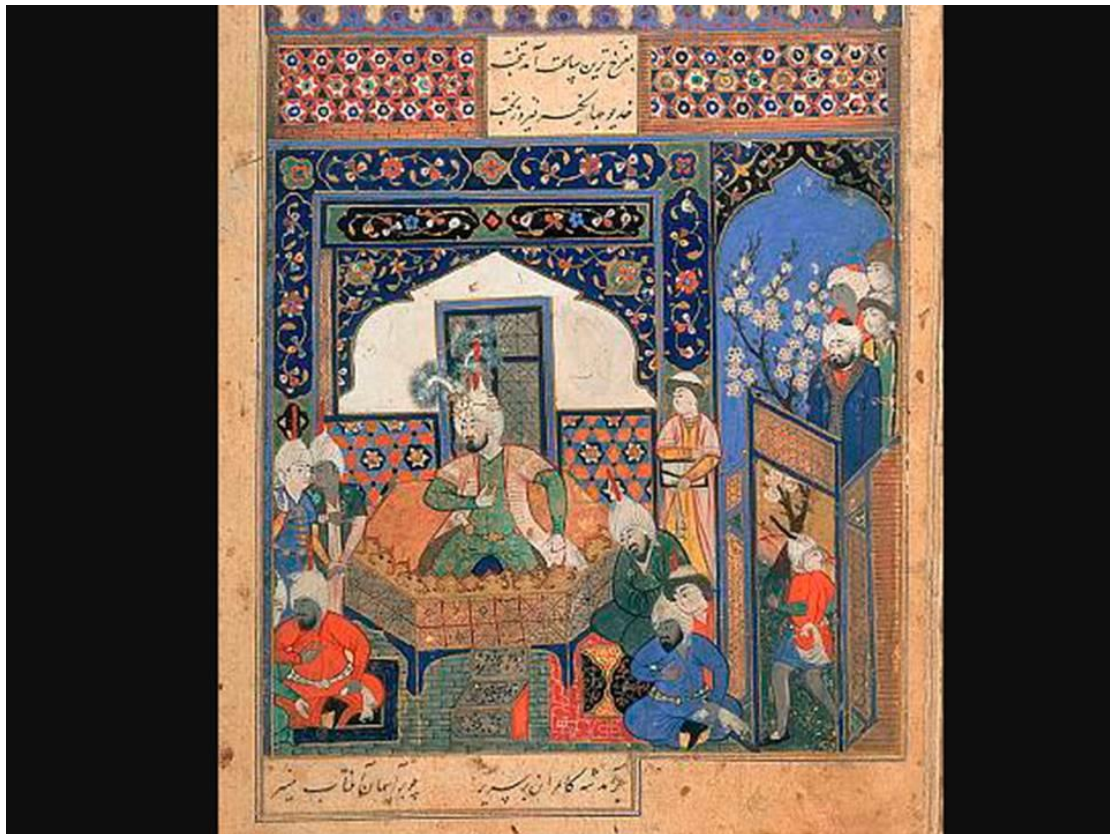 بفرخ ترین ساعت آمد بتخت
خدیو جهانگیر فیروز بخت
برآمد شه کامران بر سریر چو بر آسمان آفتاب منیر